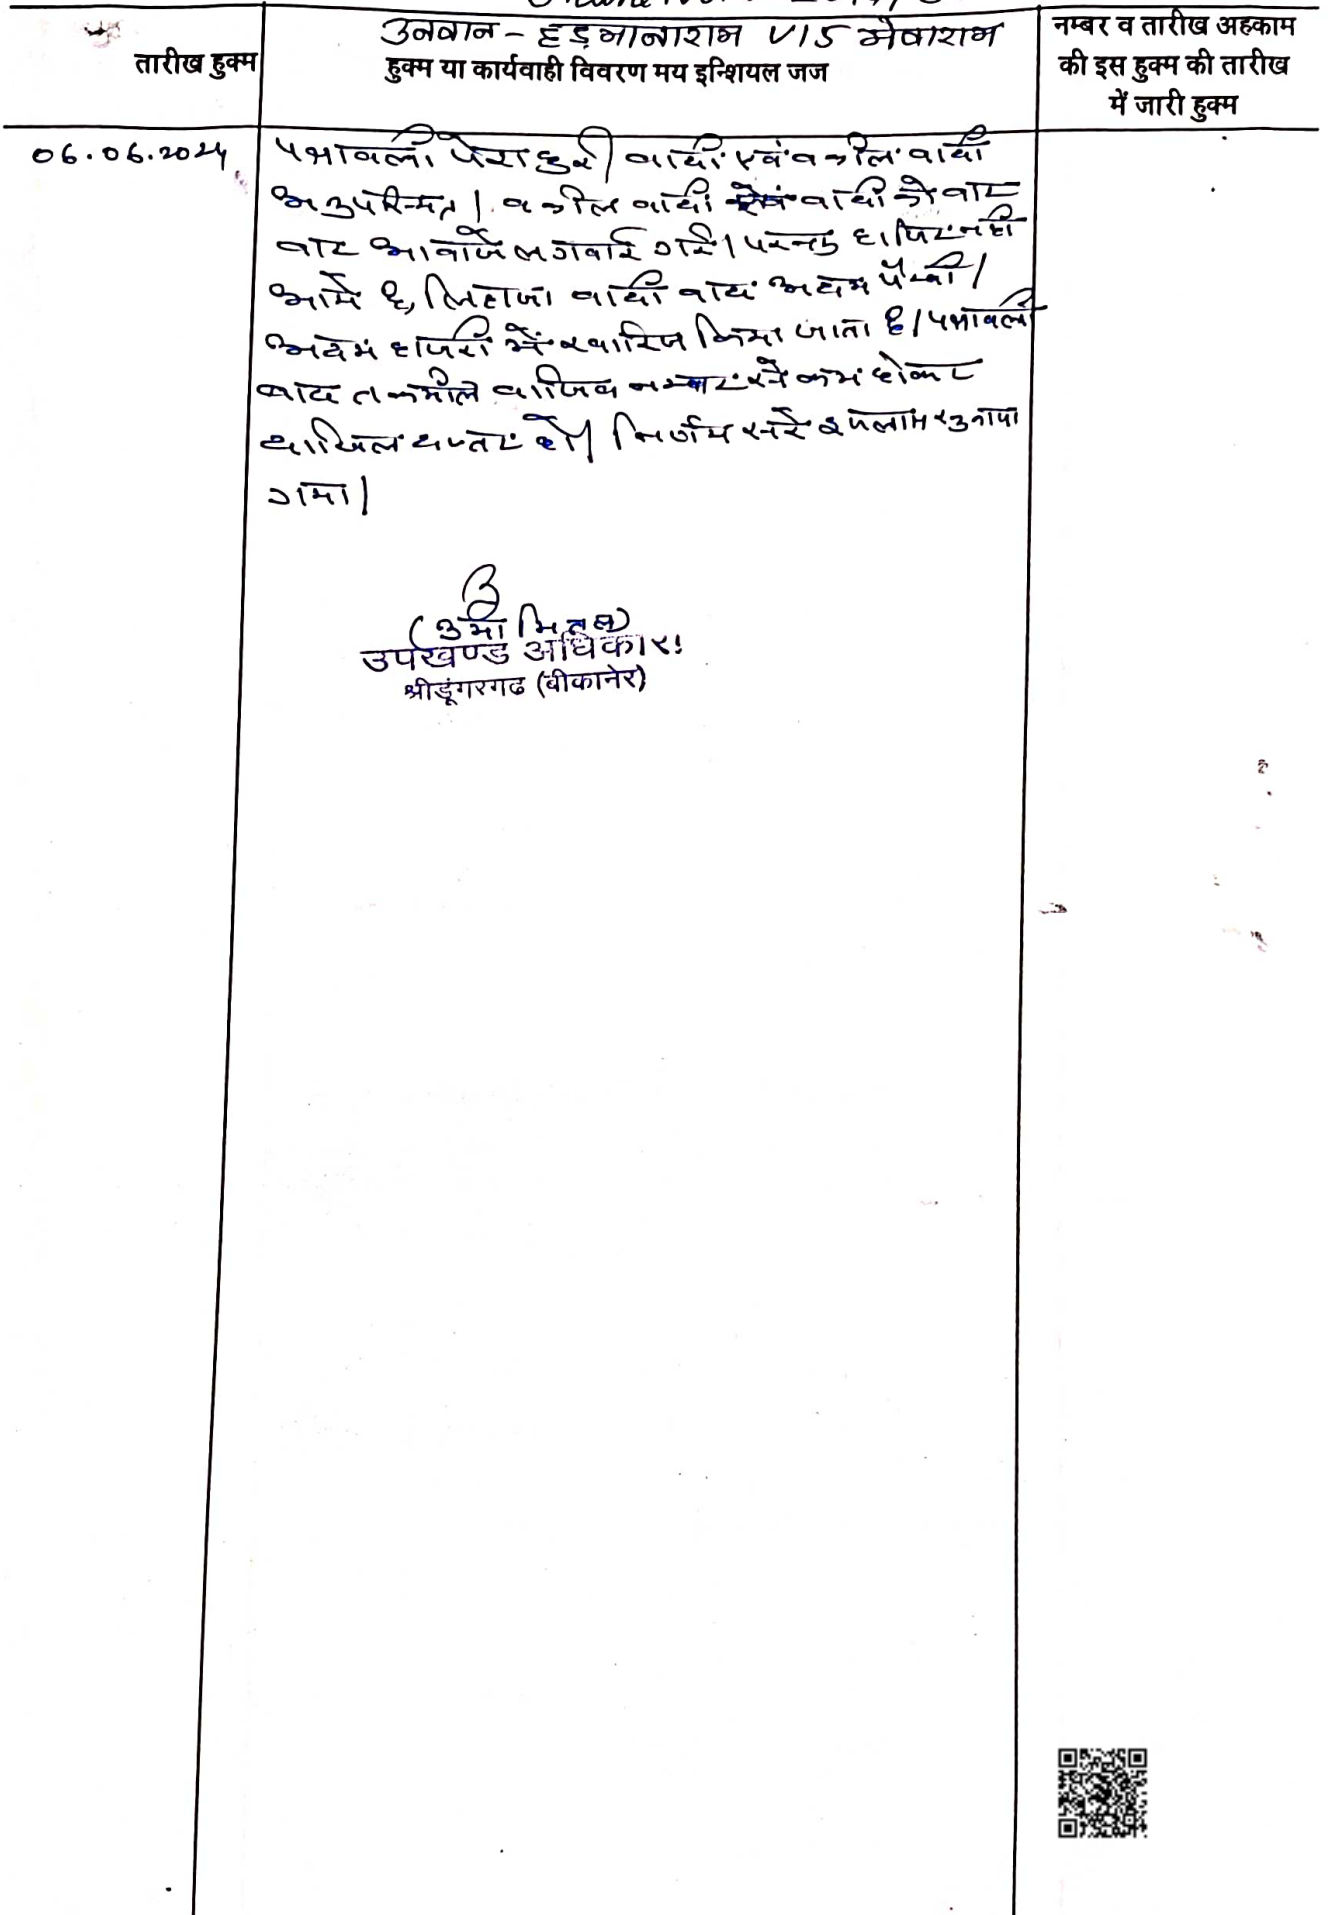 उनवान - हड़मानाराम V/S मेघाराम
तारीख हुक्म
हुक्म या कार्यवाही विवरण मय इन्शियल जज
नम्बर व तारीख अहकाम
की इस हुक्म की तारीख
में जारी हुक्म
06.06.2024
पत्रावली पेश हुई। वादी एवं वकील वादी
अनुपस्थित। वकील वादी एवं वादी को बार
बार आवाजे लगवाई गई। परन्तु हाजिर नही
आये है, लिहाजा वादी वाद अदम पैरवी।
अदम हाजरी में खारिज किया जाता है। पत्रावली
बाद तकमील वाजिब नम्बर से कम होकर
दाखिल दफ्तर हो। निर्णय सरे इजलास सुनाया
गया।
(उमा मित्तल)
उपखण्ड अधिकारी
श्रीडूंगरगढ (बीकानेर)